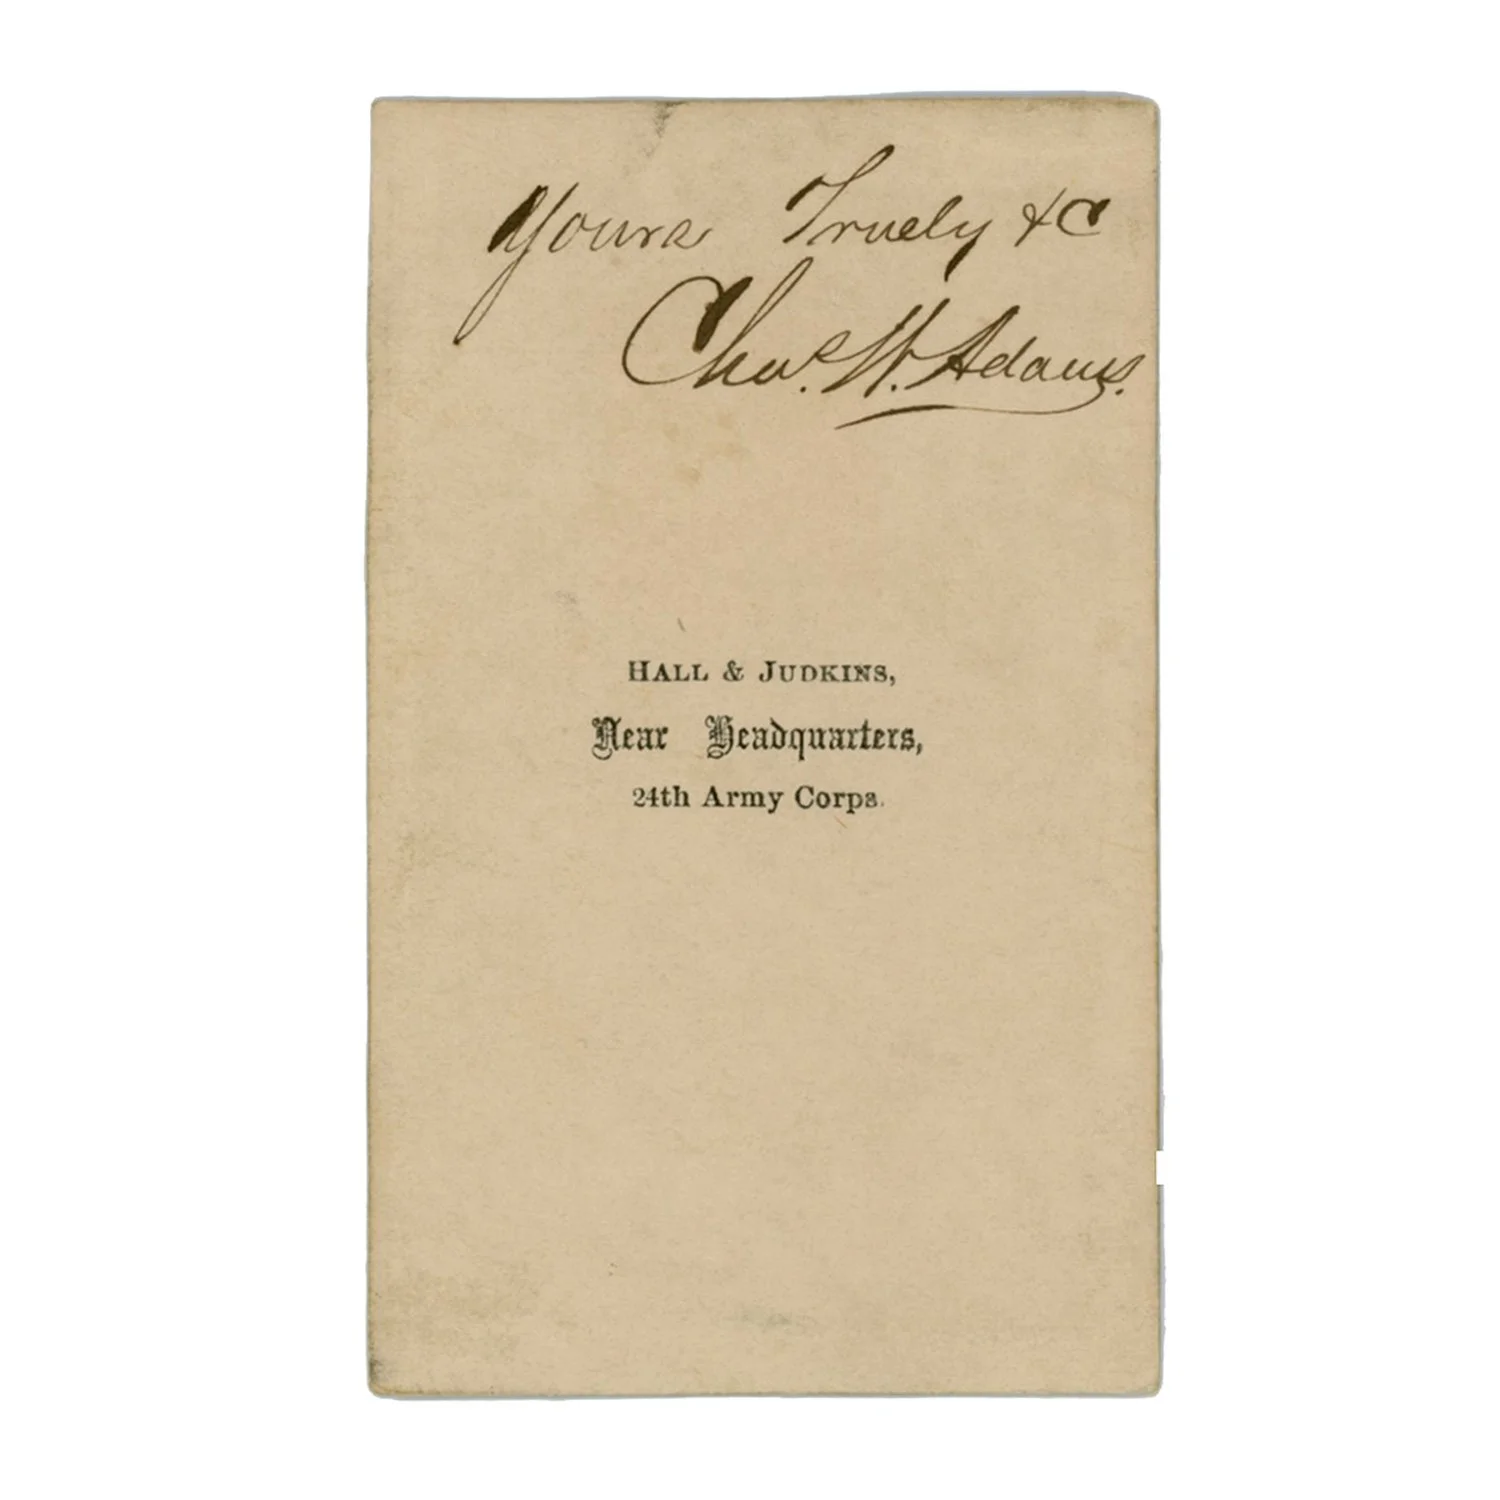 Yours Truely &c
Chas. W. Adams.
HALL & JUDKINS,
Near Headquarters,
24th Army Corps.